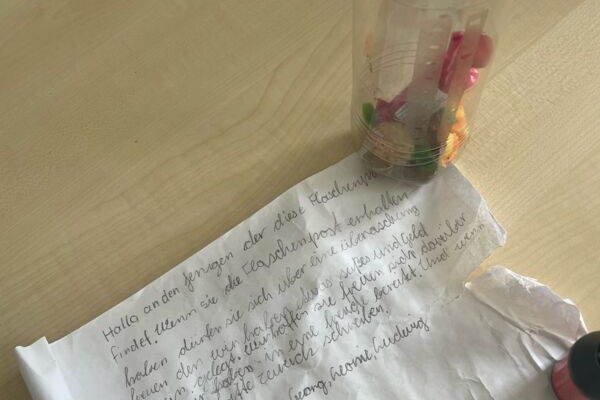 Hallo an den jenigen der diese Flaschenpost
findet. Wenn sie die Flaschenpost erhalten
haben dürfen sie sich über eine überraschung
freuen den wir haben etwas süßes und Geld
gelegt. Wir hoffen sie freuen sich darüber
haben eine freude bereitet. Und wenn
bitte zurück schreiben.
Georg, Leonie, Ludwig